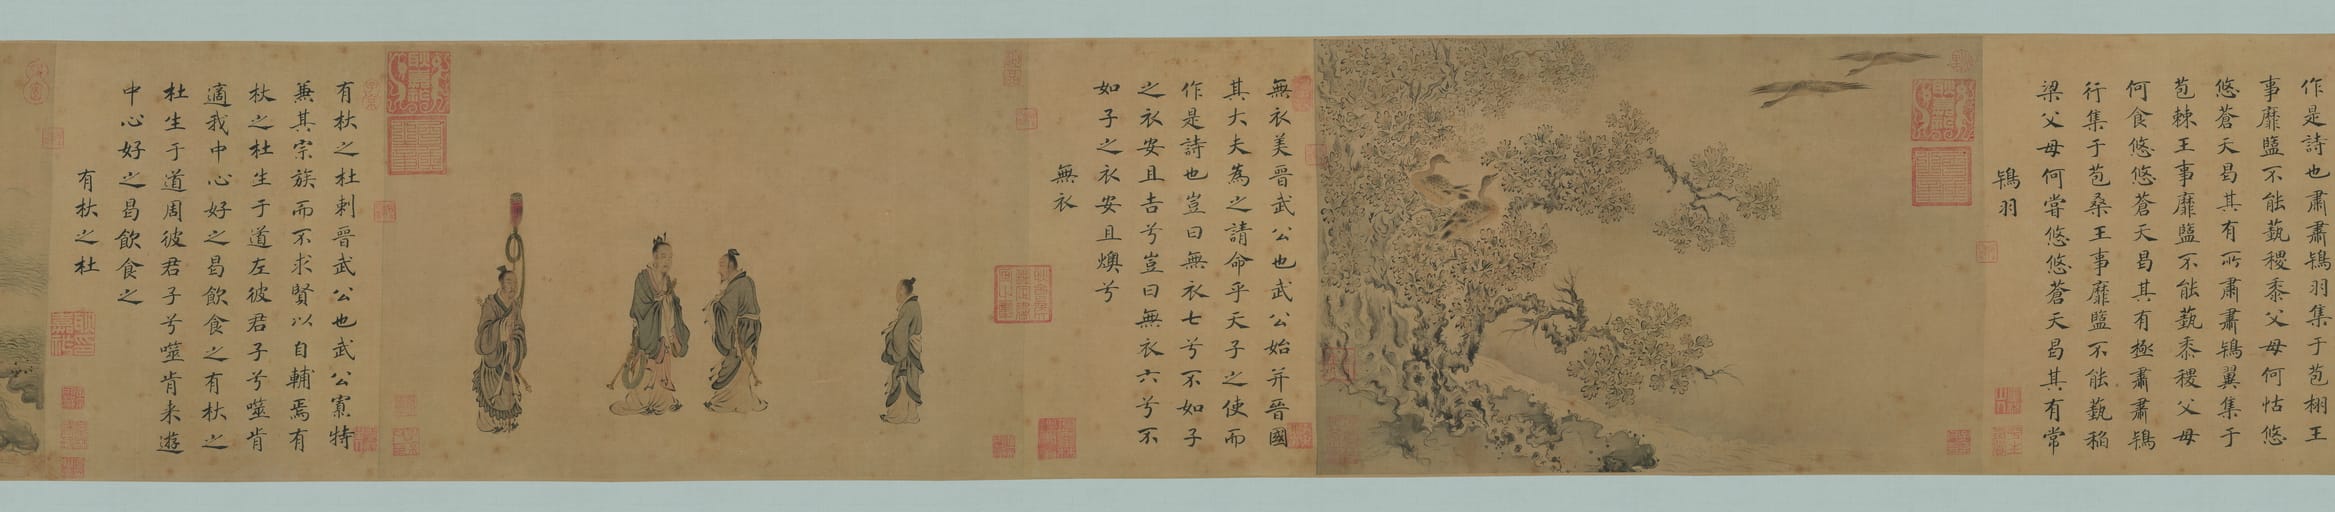 作是詩也肅肅鴇羽集于苞栩王
事靡盬不能蓺稷黍父母何怙悠
悠蒼天曷其有所肅肅鴇翼集于
苞棘王事靡盬不能蓺黍稷父母
何食悠悠蒼天曷其有極肅肅鴇
行集于苞桑王事靡盬不能蓺稻
梁父母何嘗悠悠蒼天曷其有常
鴇羽
無衣美晉武公也武公始并晉國
其大夫為之請命乎天子之使而
作是詩也豈曰無衣七兮不如子
之衣安且吉兮豈曰無衣六兮不
如子之衣安且燠兮
無衣
有杕之杜刺晉武公也武公寡特
兼其宗族而不求賢以自輔焉有
杕之杜生于道左彼君子兮噬肯
適我中心好之曷飲食之有杕之
杜生于道周彼君子兮噬肯来遊
中心好之曷飲食之
有杕之杜